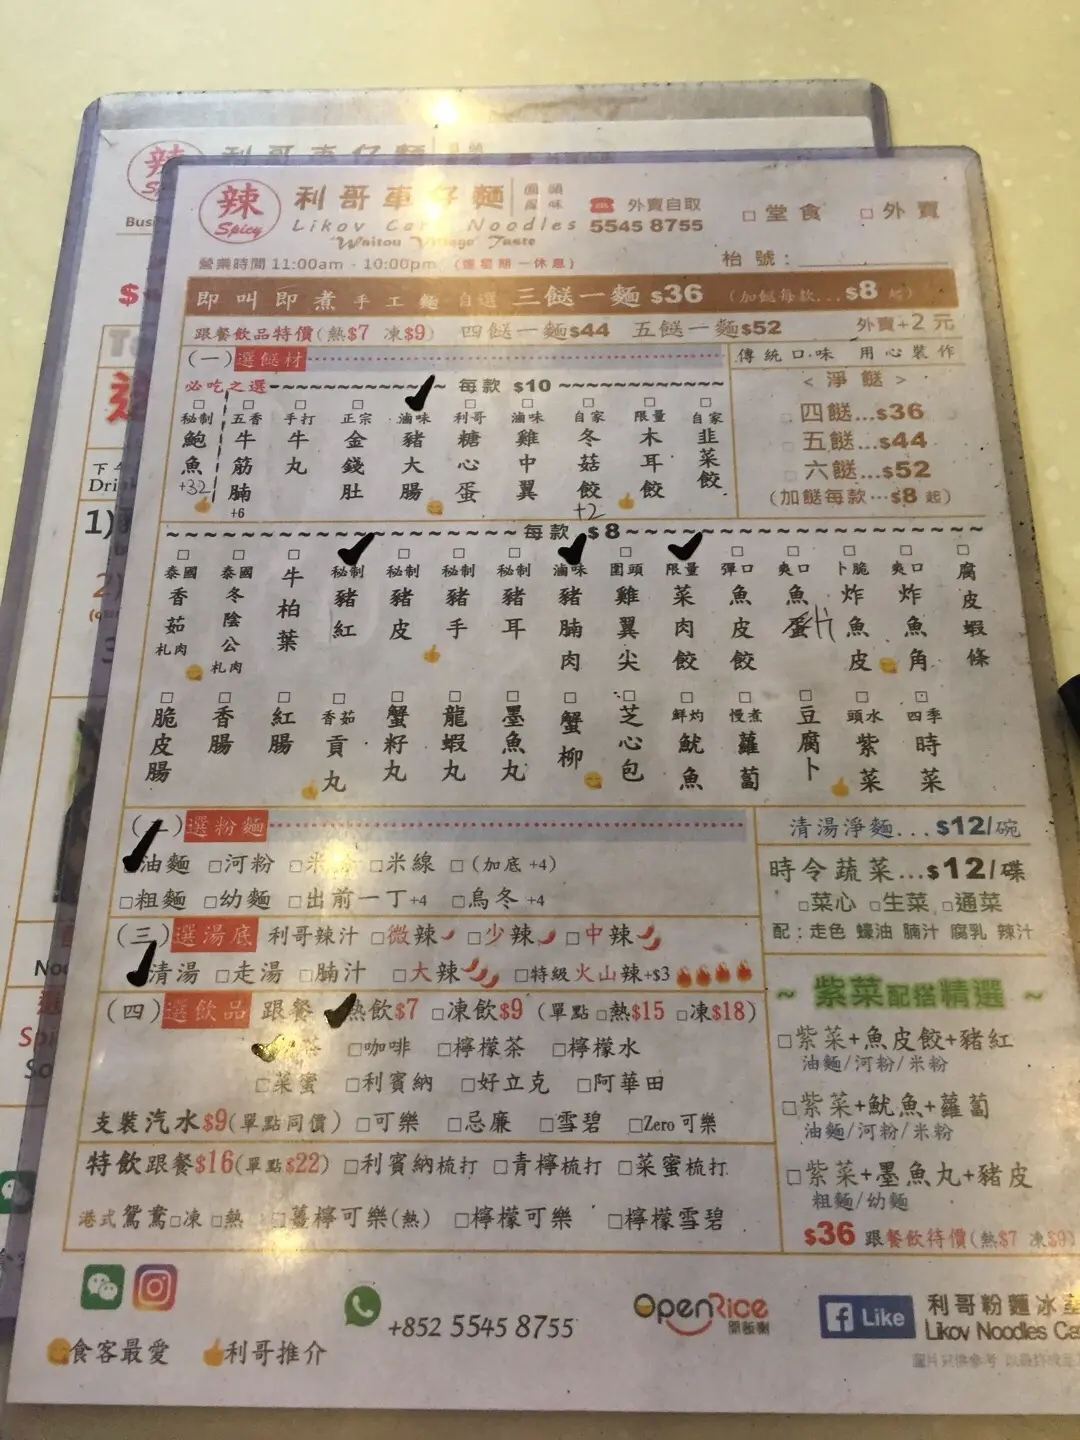 辣
Spicy
利哥車仔麵
圍頭風味
Likov Cart Noodles
Waitou Village Taste
外賣自取
5545 8755
□堂食 □外賣
營業時間 11:00am - 10:00pm (逢星期一休息)
枱號:
即叫即煮 手工麵 自選 三餸一麵 $36 (加餸每款...$8起)
跟餐飲品特價(熱$7 凍$9) 四餸一麵$44 五餸一麵$52 外賣+2元
(一)選餸材
傳統口味 用心裝作
必吃之選 每款 $10
□秘制鮑魚 +32
□五香牛筋腩 +6
□手打牛丸
□正宗金錢肚
滷味豬大腸
□利哥糖心蛋
□滷味雞中翼
□自家冬菇餃 +2
□限量木耳餃
□自家韭菜餃
<淨餸>
□四餸...$36
□五餸...$44
□六餸...$52
(加餸每款...$8起)
每款 $8
□泰國香茹札肉
□泰國冬陰公札肉
□牛柏葉
秘制豬紅
□秘制豬皮
□秘制豬手
□秘制豬耳
滷味豬腩肉
□圍頭雞翼尖
限量菜肉餃
□彈口魚皮餃
□爽口魚蛋片
□卜脆炸魚皮
□爽口炸魚角
□腐皮蝦條
□脆皮腸
□香腸
□紅腸
□香茹貢丸
□蟹籽丸
□龍蝦丸
□墨魚丸
□蟹柳
□芝心包
□鮮灼魷魚
□慢煮蘿蔔
□豆腐卜
□頭水紫菜
□四季時菜
(二)選粉麵
油麵 □河粉 □米粉 □米線 □(加底+4)
□粗麵 □幼麵 □出前一丁+4 □烏冬+4
清湯淨麵...$12/碗
時令蔬菜...$12/碟
□菜心 □生菜 □通菜
配:走色 蠔油 腩汁 腐乳 辣汁
(三)選湯底 利哥辣汁 □微辣 □少辣 □中辣
清湯 □走湯 □腩汁 □大辣 □特級火山辣+$3
(四)選飲品 跟餐 熱飲$7 □凍飲$9 (單點□熱$15 □凍$18)
茶 □咖啡 □檸檬茶 □檸檬水
□菜蜜 □利賓納 □好立克 □阿華田
支裝汽水$9(單點同價) □可樂 □忌廉 □雪碧 □Zero可樂
特飲跟餐$16(單點$22) □利賓納梳打 □青檸梳打 □菜蜜梳打
港式鴛鴦□凍 □熱 □薑檸可樂(熱) □檸檬可樂 □檸檬雪碧
~ 紫菜配搭精選 ~
□紫菜+魚皮餃+豬紅
油麵/河粉/米粉
□紫菜+魷魚+蘿蔔
油麵/河粉/米粉
□紫菜+墨魚丸+豬皮
粗麵/幼麵
$36 跟餐飲待價(熱$7 凍$9)
+852 5545 8755
OpenRice
開飯喇
Like
利哥粉麵冰室
Likov Noodles Ca
食客最愛 利哥推介
圖片只供參考
Bus
$
下午
Drin
1)
2)
3
Noo
Spi
So